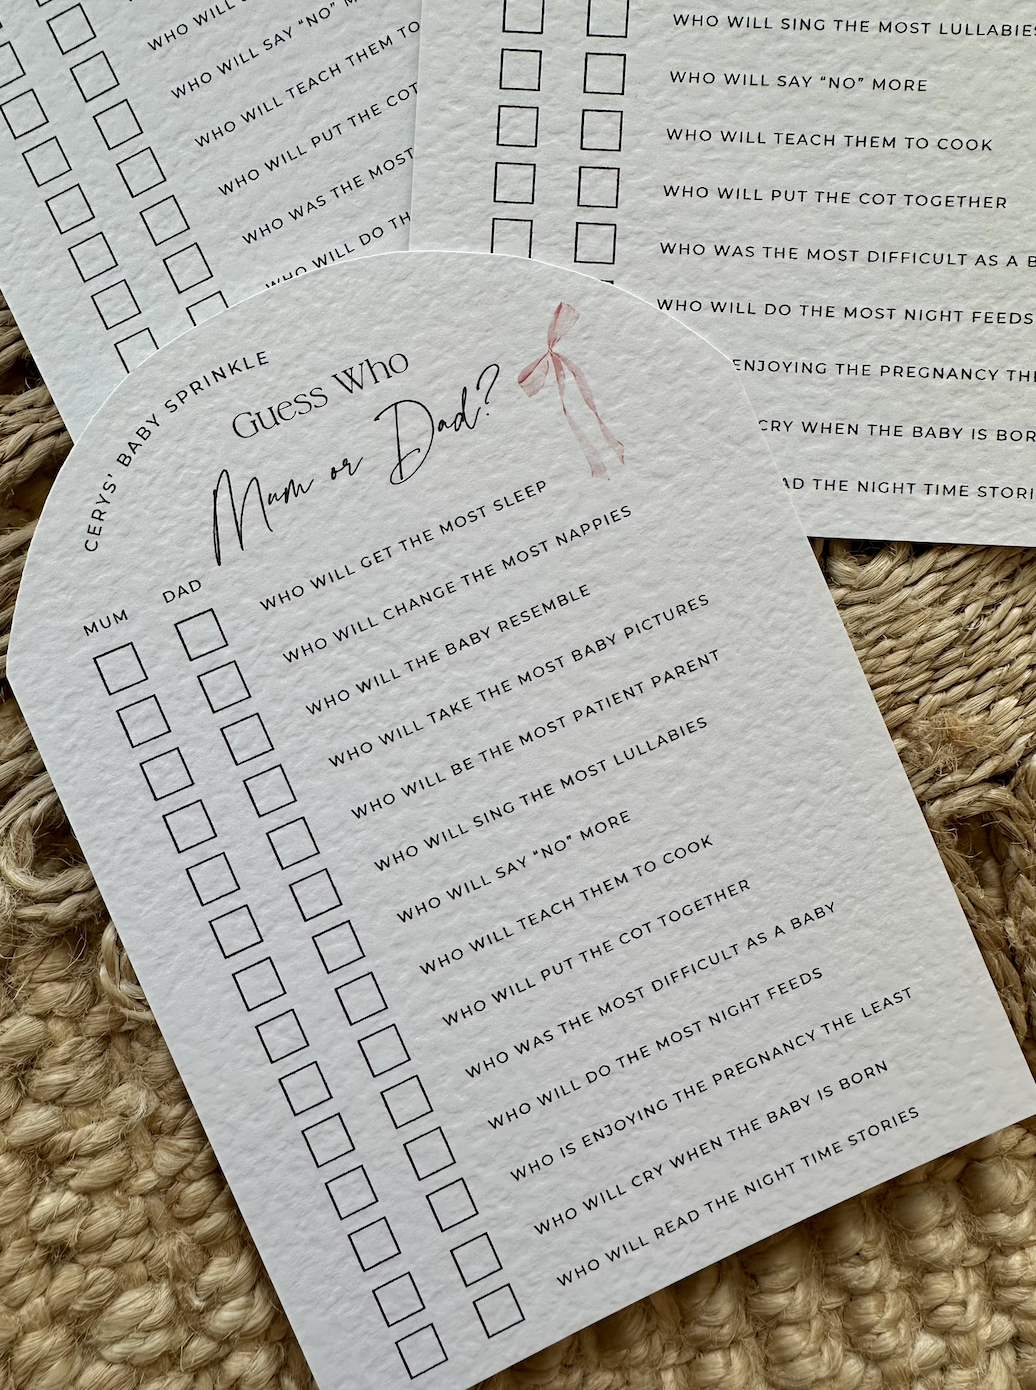 WHO WILL SAY "NO"
WHO WILL TEACH THEM TO
WHO WILL PUT THE COT
WHO WAS THE MOST
WHO WILL DO
WHO WILL SING THE MOST LULLABIES
WHO WILL SAY “NO” MORE
WHO WILL TEACH THEM TO COOK
WHO WILL PUT THE COT TOGETHER
WHO WAS THE MOST DIFFICULT AS A
WHO WILL DO THE MOST NIGHT FEEDS
ENJOYING THE PREGNANCY
CRY WHEN THE BABY IS
THE NIGHT TIME
CERYS' BABY SPRINKLE
Guess Who
Mum or Dad?
MUM DAD
WHO WILL GET THE MOST SLEEP
WHO WILL CHANGE THE MOST NAPPIES
WHO WILL THE BABY RESEMBLE
WHO WILL TAKE THE MOST BABY PICTURES
WHO WILL BE THE MOST PATIENT PARENT
WHO WILL SING THE MOST LULLABIES
WHO WILL SAY “NO” MORE
WHO WILL TEACH THEM TO COOK
WHO WILL PUT THE COT TOGETHER
WHO WAS THE MOST DIFFICULT AS A BABY
WHO WILL DO THE MOST NIGHT FEEDS
WHO IS ENJOYING THE PREGNANCY THE LEAST
WHO WILL CRY WHEN THE BABY IS BORN
WHO WILL READ THE NIGHT TIME STORIES